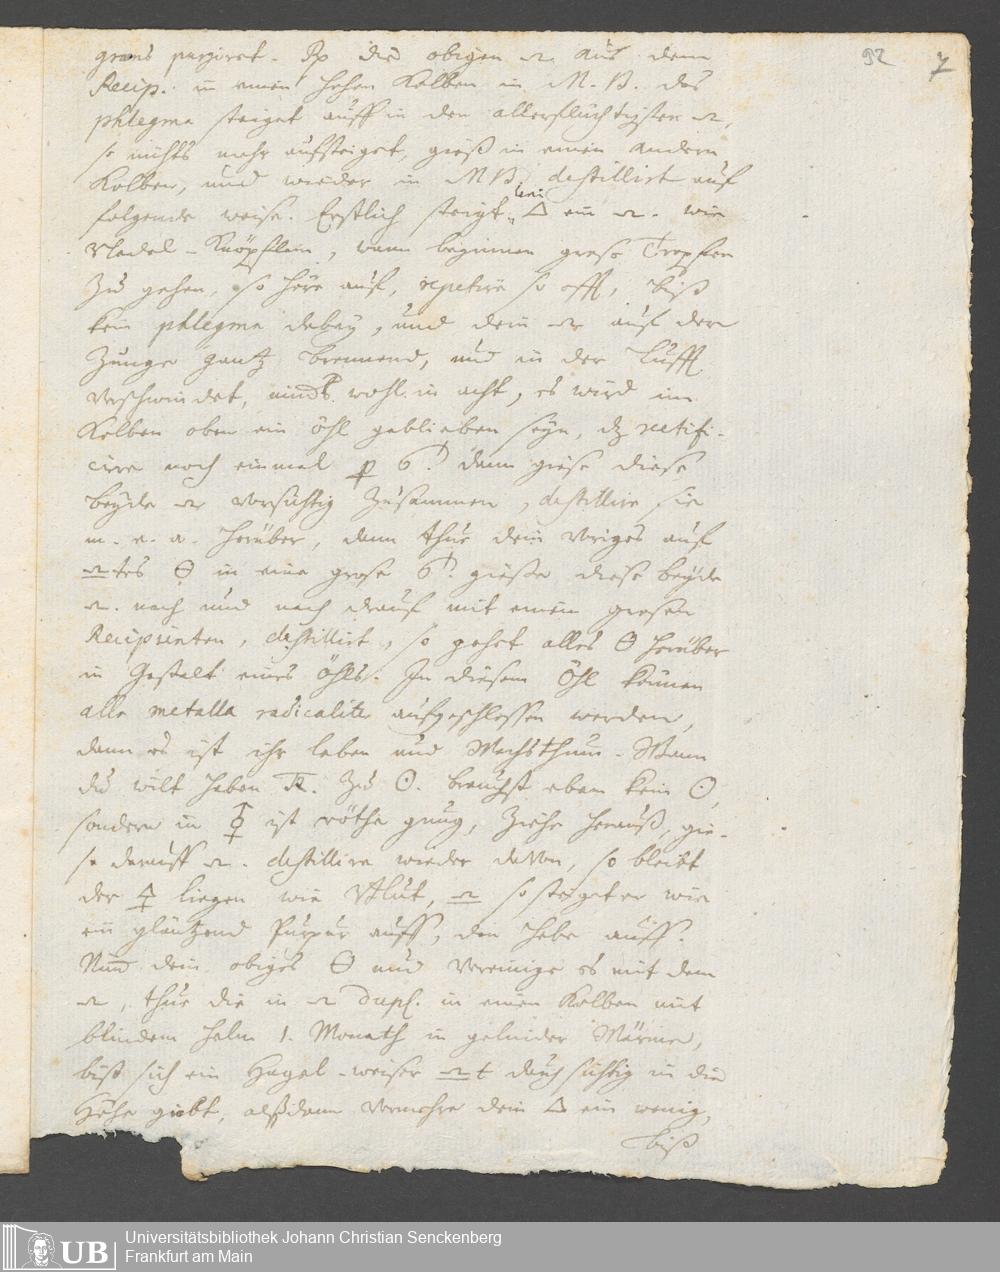 92 7
purgiret. Rp die obigen aus dem
Recip. in einen hohen Kolben in M. B. das
phlegma steiget auff in den allerflüchtigsten
so nichts mehr aufsteiget, gieß in einen andern
Kolben, und wieder in MB, destillirt auf
folgende weise. Erstlich steigt △ ein wie
Nadel-Knöpflein, wann beginnen grose Tropfen
zu gehen, so höre auf, repetire so offt, biß
kein phlegma dabey, und dein auf der
Zunge gantz brennend, und in der Lufft
verschwindet, wohl in acht, es wird im
Kolben oben ein öhl geblieben seyn, dz rectifi-
cire noch einmal p dann giese diese
beyde vorsichtig zusammen, destillire sie
m. e. a. herüber, dann thue dein voriges auf
in eine grose giesse diese beyde
nach und nach drauf mit einem grosen
Recipienten, destillirt, so gehet alles herüber
in Gestalt eines Öhls. In diesem Öhl können
alle metalla radicalite aufgeschlossen werden,
dann es ist ihr leben und Wachsthum. Wann
du wilt haben zu ☉. brauchst eben kein ☉,
sondern in ist röthe gnug, ziehe herauß, gie-
se darauff destillire wieder davon, so bleibt
der liegen wie Blut, so steiget er wie
ein gläntzend Purpur auff, den hebe auff.
Nim dein obiges und vereinige es mit dem
thue die in dupl. in einen Kolben mit
blindem Helm 1. Monath in gelinder Wärme,
biß sich ein Hagel-weiser durchsichtig in die
Höhe giebt, alßdann vermehre dein △ ein wenig,
biß
UB Universitätsbibliothek Johann Christian Senckenberg
Frankfurt am Main